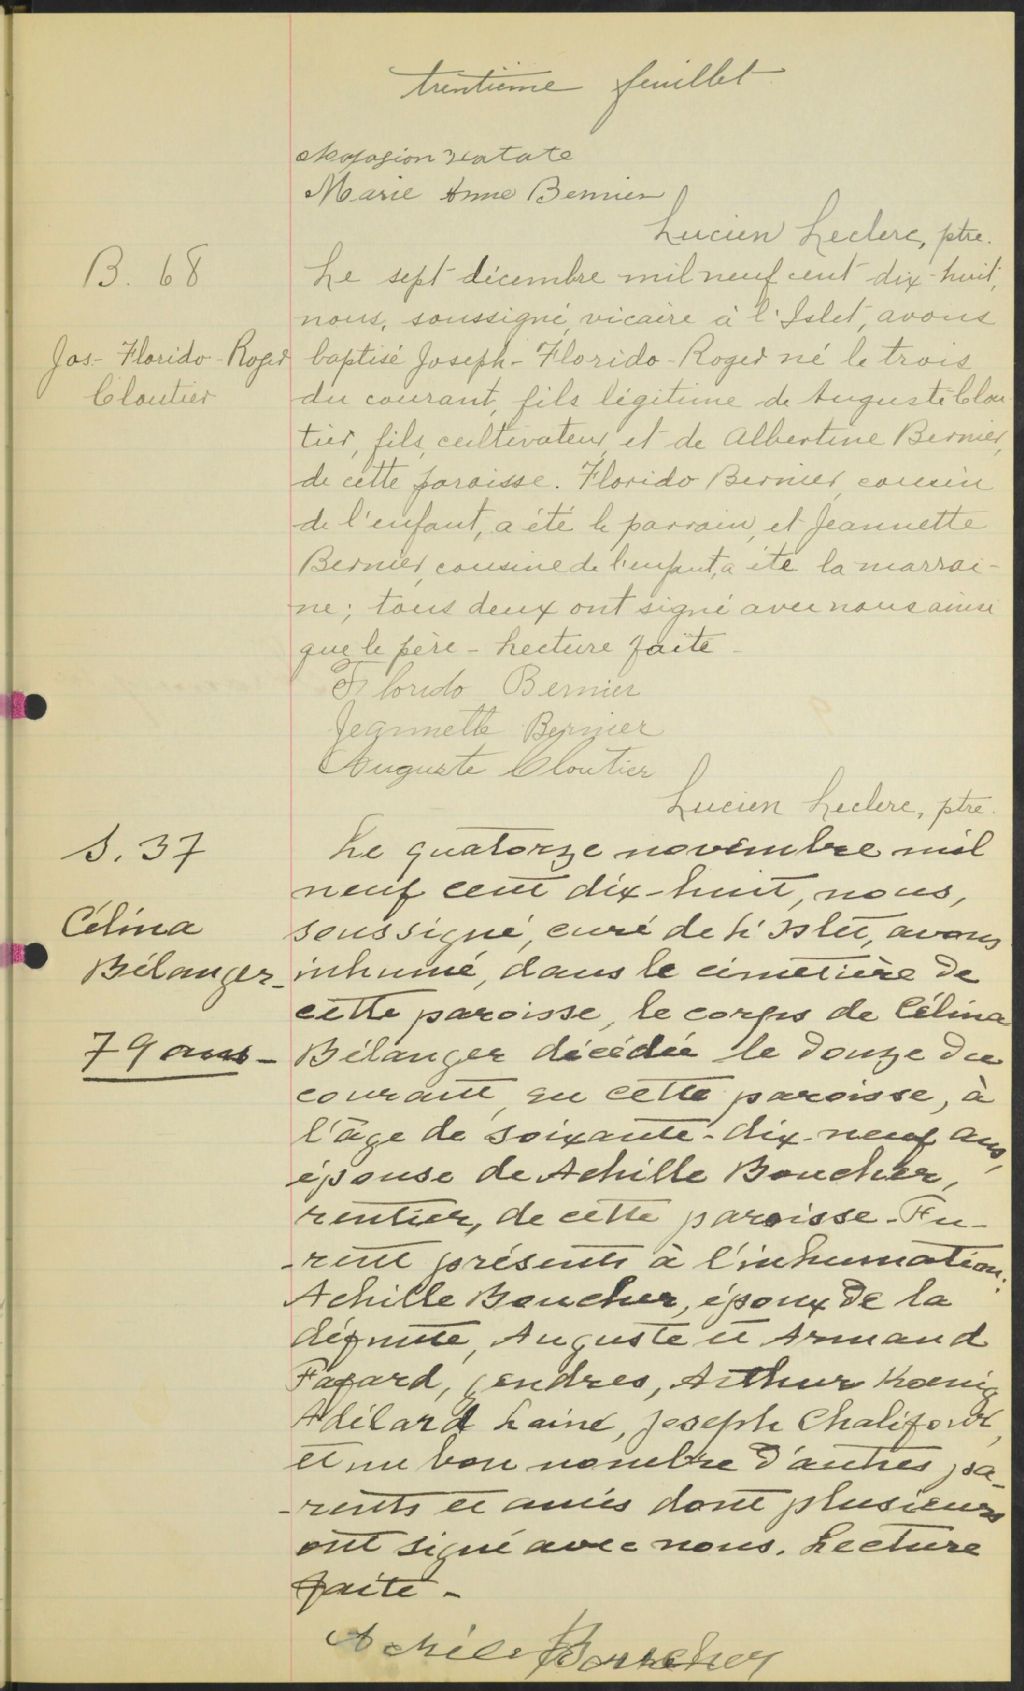 trentième feuillet
Marie Anne Bernier
Lucien Leclerc, ptre.
B. 68
Jos- Florido- Roger
Cloutier
Le sept décembre mil neuf cent dix-huit,
nous, soussigné, vicaire à l'Islet, avons
baptisé Joseph- Florido- Roger né le trois
du courant, fils légitime de Auguste Clou
tier, fils, cultivateur, et de Albertine Bernier,
de cette paroisse. Florido Bernier, cousin
de l'enfant, a été le parrain, et Jeannette
Bernier, cousine de l'enfant, a été la marrai-
ne; tous deux ont signé avec nous ainsi
que le père - Lecture faite -
Florido Bernier
Jeannette Bernier
Auguste Cloutier
Lucien Leclerc, ptre.
S. 37
Célina
Bélanger-
79 ans-
Le quatorze novembre mil
neuf cent dix-huit, nous,
soussigné, curé de L'Islet, avons
inhumé, dans le cimetière de
cette paroisse, le corps de Célina
Bélanger décédée le douze du
courant, en cette paroisse, à
l'âge de soixante-dix-neuf ans,
épouse de Achille Boucher,
rentier, de cette paroisse. Fu-
-rent présents à l'inhumation:
Achille Boucher, époux de la
défunte, Auguste et Armand
Fafard, gendres, Arthur Koenig
Adélard Lainé, Joseph Chalifour,
et un bon nombre d'autres pa-
-rents et amis dont plusieurs
ont signé avec nous. Lecture
faite -
Achile Boucher